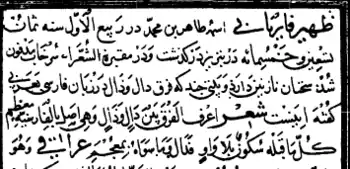 ظهیر فاریابی اسمه طاهر بن محمد در ربیع الاول سنه ثمان
تسعین و خمسمائه در تبریز در گذشت و در مقبره الشعرا سرخاب مدفون
شد سخنان نازنین دارد و بیتی چند که فرق دال و ذال در زبان فارسی و عربی
گفته اینست شعر اعرف الفرق بین دال و ذال وهو اصل بالفارسیه معظم
کل ما قبله سکون بلا وای فدال وما سواه معجم عراقی وهو